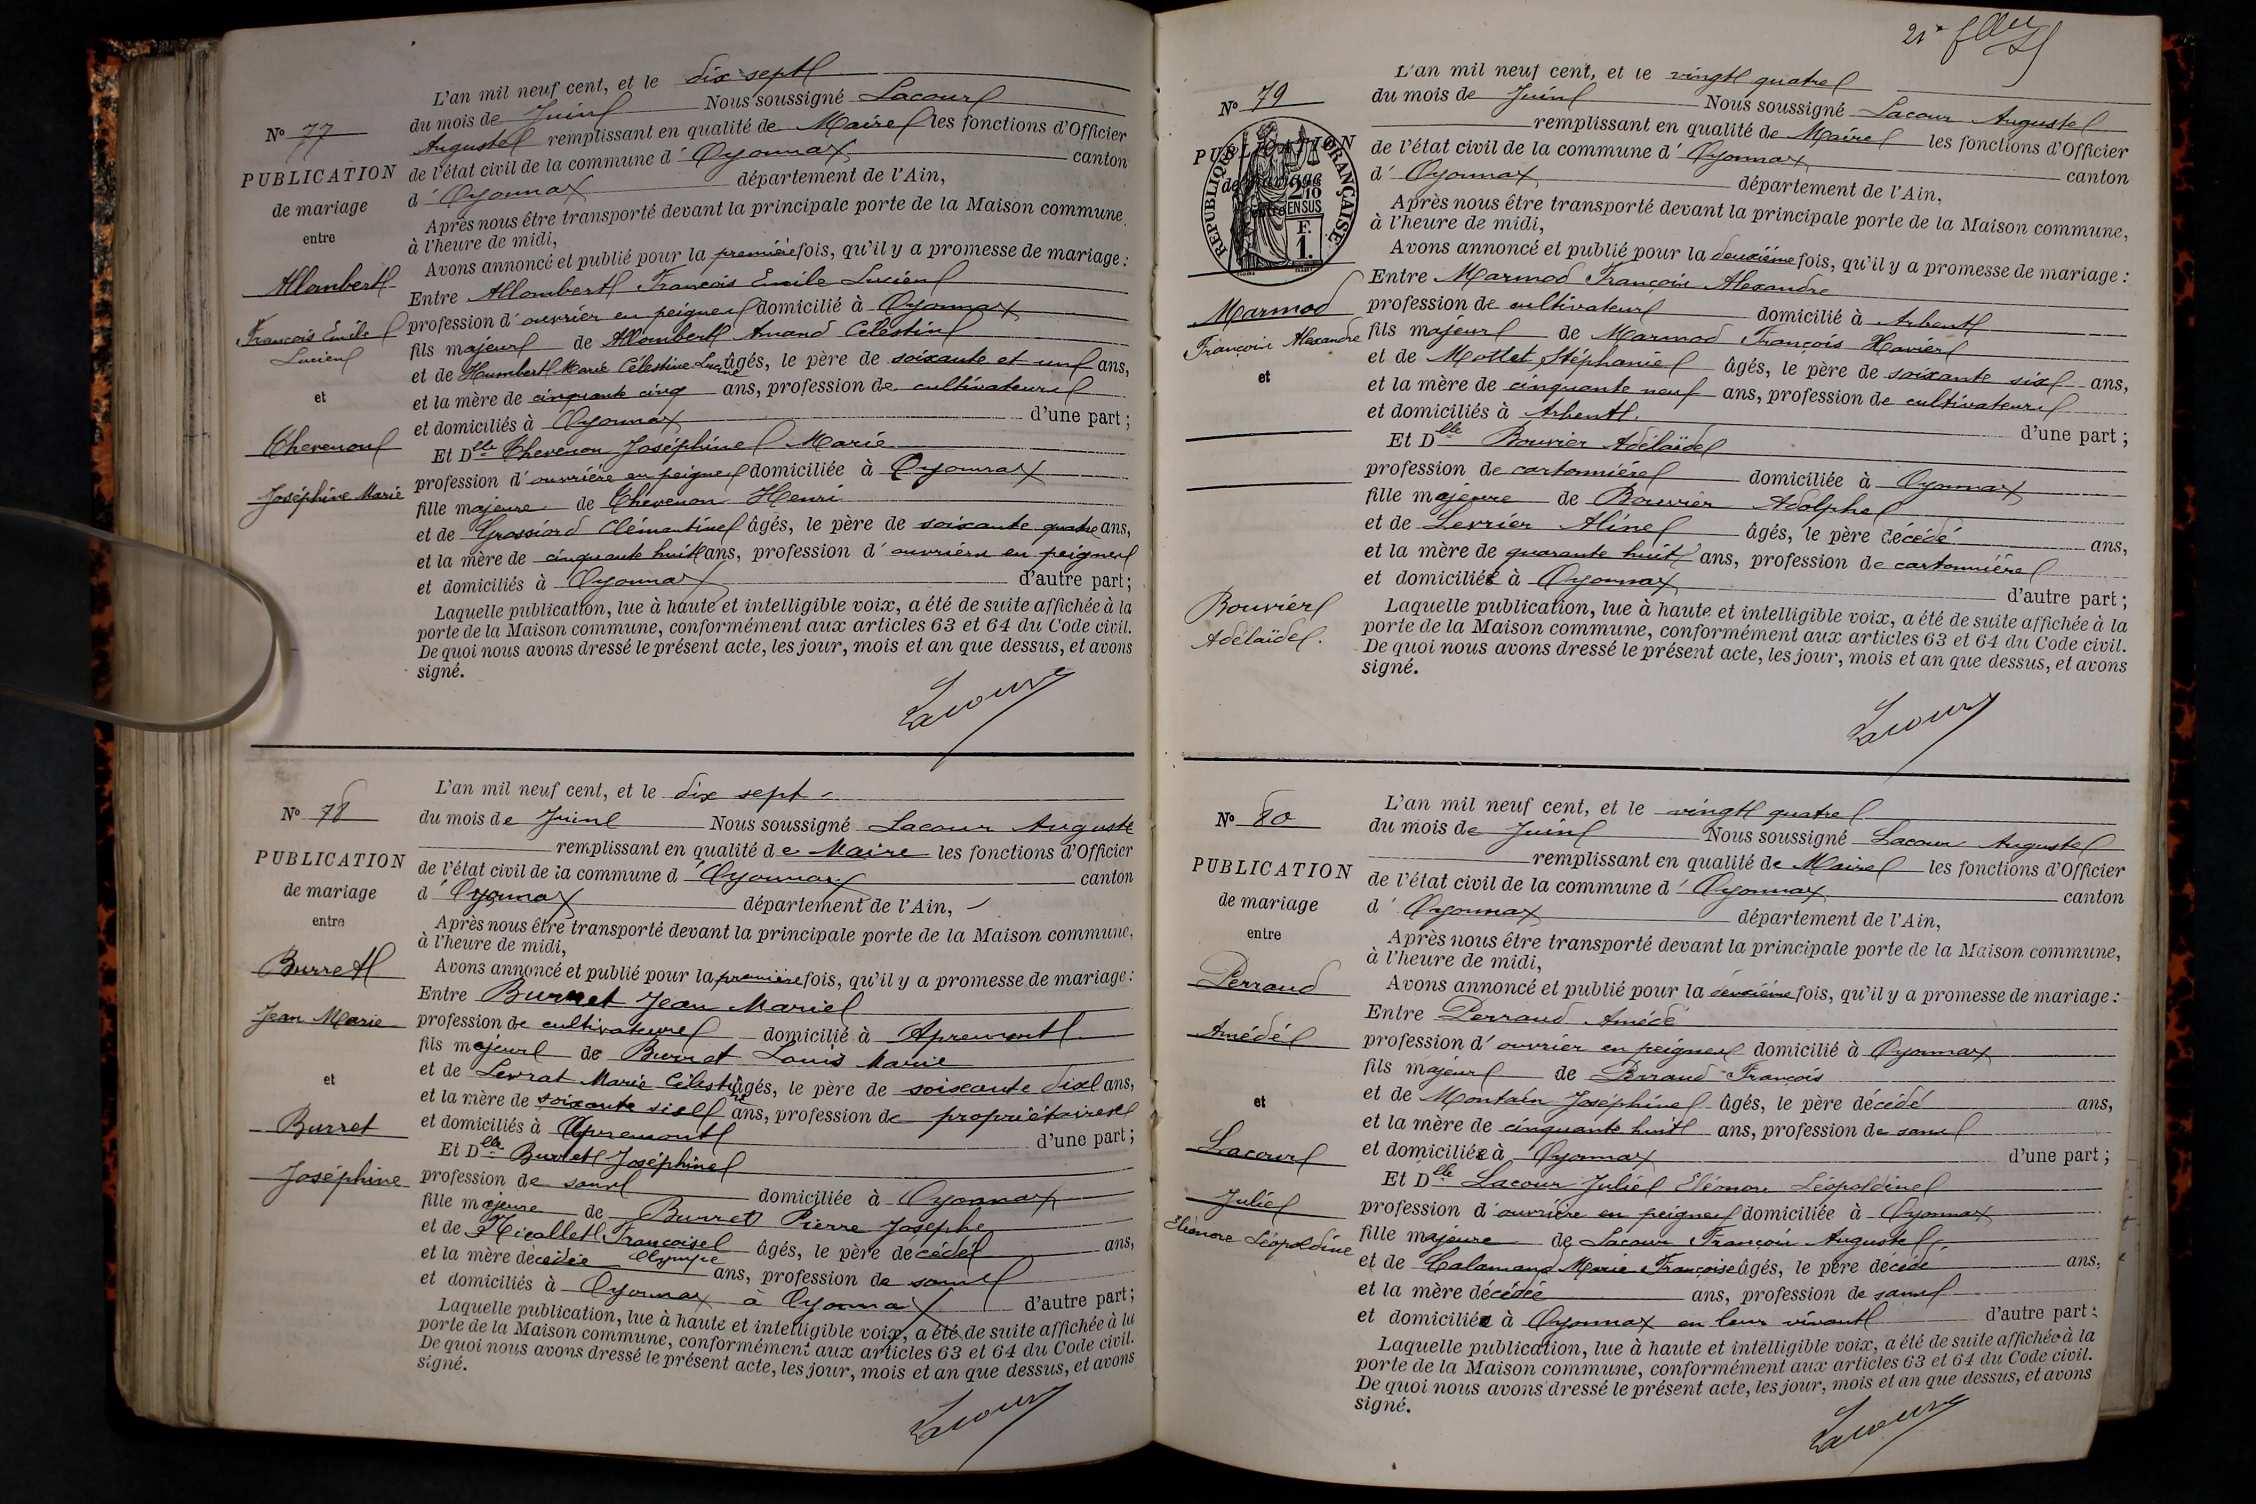 L'an mil neuf cent, et le dix sept
du mois de Juin Nous soussigné Lacour
Auguste remplissant en qualité de Maire les fonctions d'Officier
de l'état civil de la commune d' Oyonnax canton
d' Oyonnax département de l'Ain,
Après nous être transporté devant la principale porte de la Maison commune,
à l'heure de midi,
Avons annoncé et publié pour la première fois, qu'il y a promesse de mariage :
Entre Allombert François Emile Lucien
profession d' ouvrier en peignes domicilié à Oyonnax
fils majeur de Allombert Amand Célestin
et de Humbert Marie Célestine Lucine âgés, le père de soixante et un ans,
et la mère de cinquante cinq ans, profession de cultivateurs
et domiciliés à Oyonnax d'une part ;
Et Dlle Chevenon Joséphine Marie
profession d' ouvrière en peignes domiciliée à Oyonnax
fille majeure de Chevenon Henri
et de Grossiord Clémentine âgés, le père de soixante quatre ans,
et la mère de cinquante huit ans, profession d' ouvriers en peignes
et domiciliés à Oyonnax d'autre part ;
Laquelle publication, lue à haute et intelligible voix, a été de suite affichée à la
porte de la Maison commune, conformément aux articles 63 et 64 du Code civil.
De quoi nous avons dressé le présent acte, les jour, mois et an que dessus, et avons
signé.
Lacour
No 77
PUBLICATION
de mariage
entre
Allombert
François Emile
Lucien
et
Chevenon
Joséphine Marie
L'an mil neuf cent, et le dix sept
du mois de Juin Nous soussigné Lacour Auguste
remplissant en qualité de Maire les fonctions d'Officier
de l'état civil de la commune d' Oyonnax canton
d' Oyonnax département de l'Ain,
Après nous être transporté devant la principale porte de la Maison commune,
à l'heure de midi,
Avons annoncé et publié pour la première fois, qu'il y a promesse de mariage :
Entre Burret Jean Marie
profession de cultivateur domicilié à Apremont
fils majeur de Burret Louis Marie
et de Levrat Marie Célestine âgés, le père de soixante dix ans,
et la mère de soixante six ans, profession de propriétaires
et domiciliés à Apremont d'une part ;
Et Dlle Burret Joséphine
profession de sans domiciliée à Oyonnax
fille majeure de Burret Pierre Josephe
et de Nicollet Françoise âgés, le père décédé ans,
Olympe
et la mère décédée ans, profession de sans
et domiciliés à Oyonnax à Oyonnax d'autre part ;
Laquelle publication, lue à haute et intelligible voix, a été de suite affichée à la
porte de la Maison commune, conformément aux articles 63 et 64 du Code civil.
De quoi nous avons dressé le présent acte, les jour, mois et an que dessus, et avons
signé.
Lacour
No 78
PUBLICATION
de mariage
entre
Burret
Jean Marie
et
Burret
Joséphine
21e
L'an mil neuf cent, et le vingt quatre
du mois de Juin Nous soussigné Lacour Auguste
remplissant en qualité de Maire les fonctions d'Officier
de l'état civil de la commune d' Oyonnax canton
d' Oyonnax département de l'Ain,
Après nous être transporté devant la principale porte de la Maison commune,
à l'heure de midi,
Avons annoncé et publié pour la deuxième fois, qu'il y a promesse de mariage :
Entre Marmod François Alexandre
profession de cultivateur domicilié à Arbent
fils majeur de Marmod François Xavier
et de Mollet Stéphanie âgés, le père de soixante six ans,
et la mère de cinquante neuf ans, profession de cultivateurs
et domiciliés à Arbent. d'une part ;
Et Dlle Bouvier Adélaïde
profession de cartonnière domiciliée à Oyonnax
fille majeure de Bouvier Adolphe
et de Levrier Aline âgés, le père décédé ans,
et la mère de quarante huit ans, profession de cartonnière
et domiciliée à Oyonnax d'autre part ;
Laquelle publication, lue à haute et intelligible voix, a été de suite affichée à la
porte de la Maison commune, conformément aux articles 63 et 64 du Code civil.
De quoi nous avons dressé le présent acte, les jour, mois et an que dessus, et avons
signé.
Lacour
No 79
PUBLICATION
de mariage
entre
RÉPUBLIQUE FRANÇAISE
2/10
EN SUS
F.
1.
Marmod
François Alexandre
et
Bouvier
Adélaïde.
L'an mil neuf cent, et le vingt quatre
du mois de Juin Nous soussigné Lacour Auguste
remplissant en qualité de Maire les fonctions d'Officier
de l'état civil de la commune d' Oyonnax canton
d' Oyonnax département de l'Ain,
Après nous être transporté devant la principale porte de la Maison commune,
à l'heure de midi,
Avons annoncé et publié pour la deuxième fois, qu'il y a promesse de mariage :
Entre Perraud Amédé
profession d' ouvrier en peignes domicilié à Oyonnax
fils majeur de Perraud François
et de Montain Joséphine âgés, le père décédé ans,
et la mère de cinquante huit ans, profession de sans
et domiciliée à Oyonnax d'une part ;
Et Dlle Lacour Julie Eléonore Léopoldine
profession d' ouvrière en peignes domiciliée à Oyonnax
fille majeure de Lacour François Auguste
et de Calamand Marie Françoise âgés, le père décédé ans,
et la mère décédée ans, profession de sans
et domiciliés à Oyonnax en leur vivant d'autre part :
Laquelle publication, lue à haute et intelligible voix, a été de suite affichée à la
porte de la Maison commune, conformément aux articles 63 et 64 du Code civil.
De quoi nous avons dressé le présent acte, les jour, mois et an que dessus, et avons
signé.
Lacour
No 80
PUBLICATION
de mariage
entre
Perraud
Amédé
et
Lacour
Julie
Eléonore Léopoldine